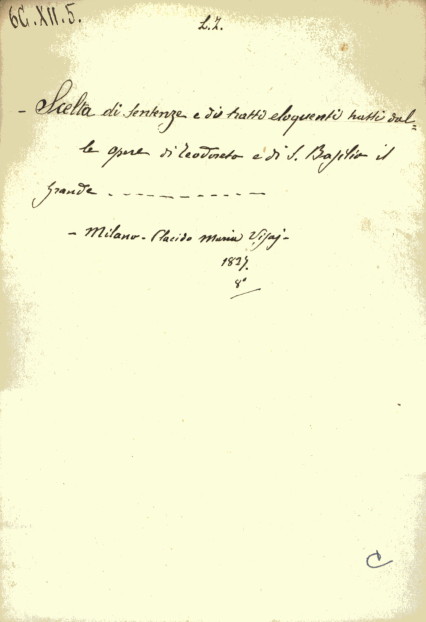 6C.XII.5.
L.I.
- Scelta di sentenze e di tratti eloquenti tratti dal=
le opere di Teodoreto e di S. Basilio il
Grande - - - - - - - - - -
- Milano - Placido Maria Visaj -
1827.
8°
C